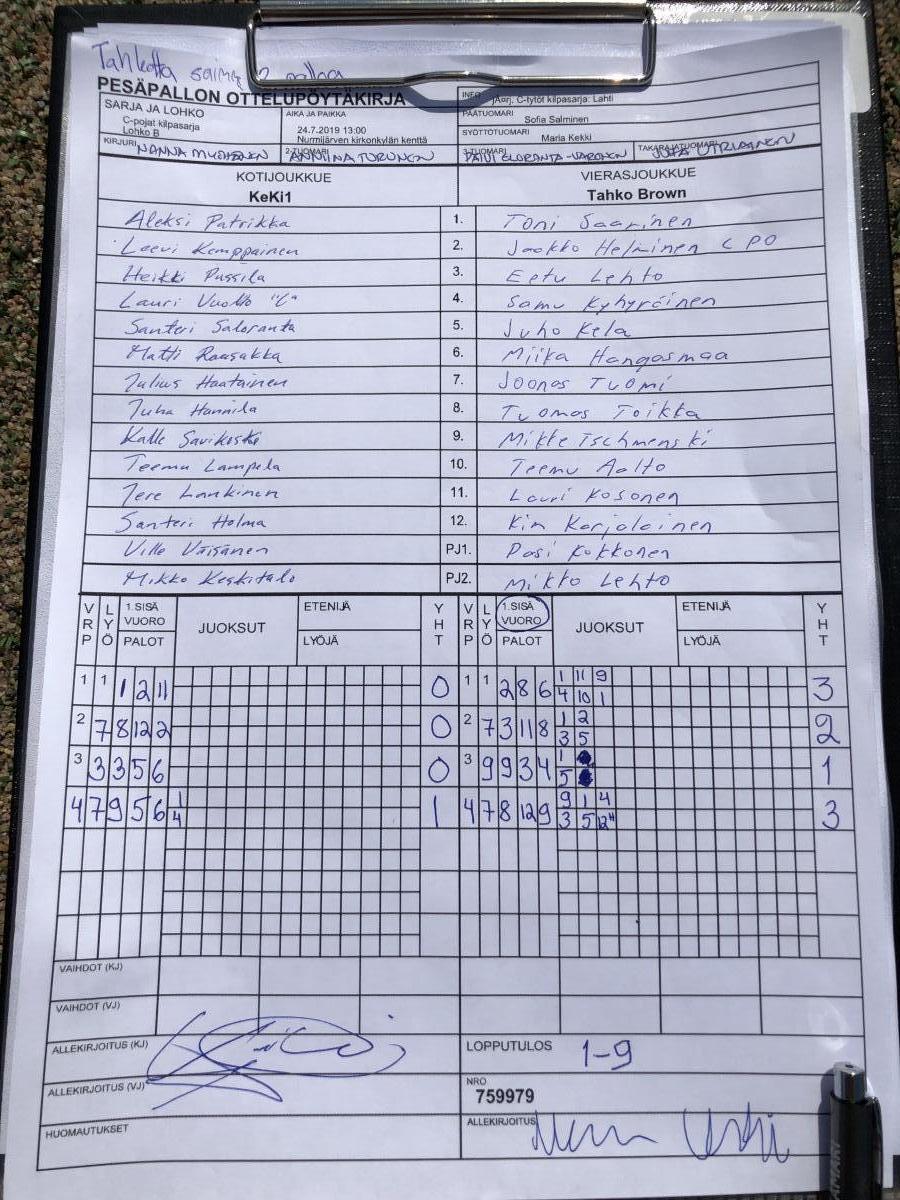 Tahkolta
PESÄPALLON OTTELUPÖYTÄKIRJA
INFO Aorj. C-tytöt kilpasarja: Lahti
SARJA JA LOHKO
C-pojat kilpasarja
Lohko B
AIKA JA PAIKKA
24.7.2019 13:00
Nurmijärven kirkonkylän kenttä
PÄÄTUOMARI
Sofia Salminen
SYÖTTÖTUOMARI
Maria Kekki
KIRJURI NANNA
2-TUOMARI ANNIINA TURUNEN
3-TUOMARI PÄIVI ELORANTA-VARONEN
TAKARAJATUOMARI JUHA UTRIAINEN
KOTIJOUKKUE
KeKi1
VIERASJOUKKUE
Tahko Brown
Aleksi Patrikka 1. Toni Saarinen
Leevi Kemppainen 2. Jaakko Helminen C PO
Heikki Pussila 3. Eetu Lehto
Lauri Vuollo "C" 4. Samu Kyhyräinen
Santeri Saloranta 5. Juho Kela
Matti Raasakka 6. Miika Hangasmaa
Julius Haatainen 7. Joonas Tuomi
Juha Hannila 8. Tuomas Toikka
Kalle Savikoski 9. Mikke Tschmenski
Teemu Lampela 10. Teemu Aalto
Jere Lankinen 11. Lauri Kosonen
Santeri Holma 12. Kim Karjalainen
Ville Väisänen PJ1. Pasi Kokkonen
Mikko Keskitalo PJ2. Mikko Lehto
VRP LYÖ 1.SISÄ VUORO PALOT JUOKSUT ETENIJÄ LYÖJÄ YHT VRP LYÖ 1.SISÄ VUORO PALOT JUOKSUT ETENIJÄ LYÖJÄ YHT
1 1 1 2 11 0 1 1 2 8 6 1 11 9 3
4 10 1
2 7 8 12 2 0 2 7 3 11 8 1 2 2
3 5
3 3 3 5 6 0 3 9 9 3 4 1 1
5
4 7 9 5 6 1 1 4 7 8 12 9 9 1 4 3
4 3 5 12"
VAIHDOT (KJ)
VAIHDOT (VJ)
ALLEKIRJOITUS (KJ)
LOPPUTULOS 1-9
ALLEKIRJOITUS (VJ)
NRO
759979
HUOMAUTUKSET
ALLEKIRJOITUS